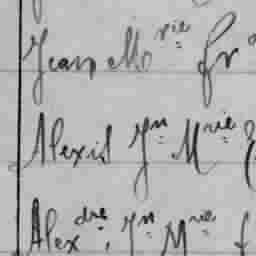 Jean M^rie Fr
Alexis J^n M^rie
Alex^dre J^n M^rie